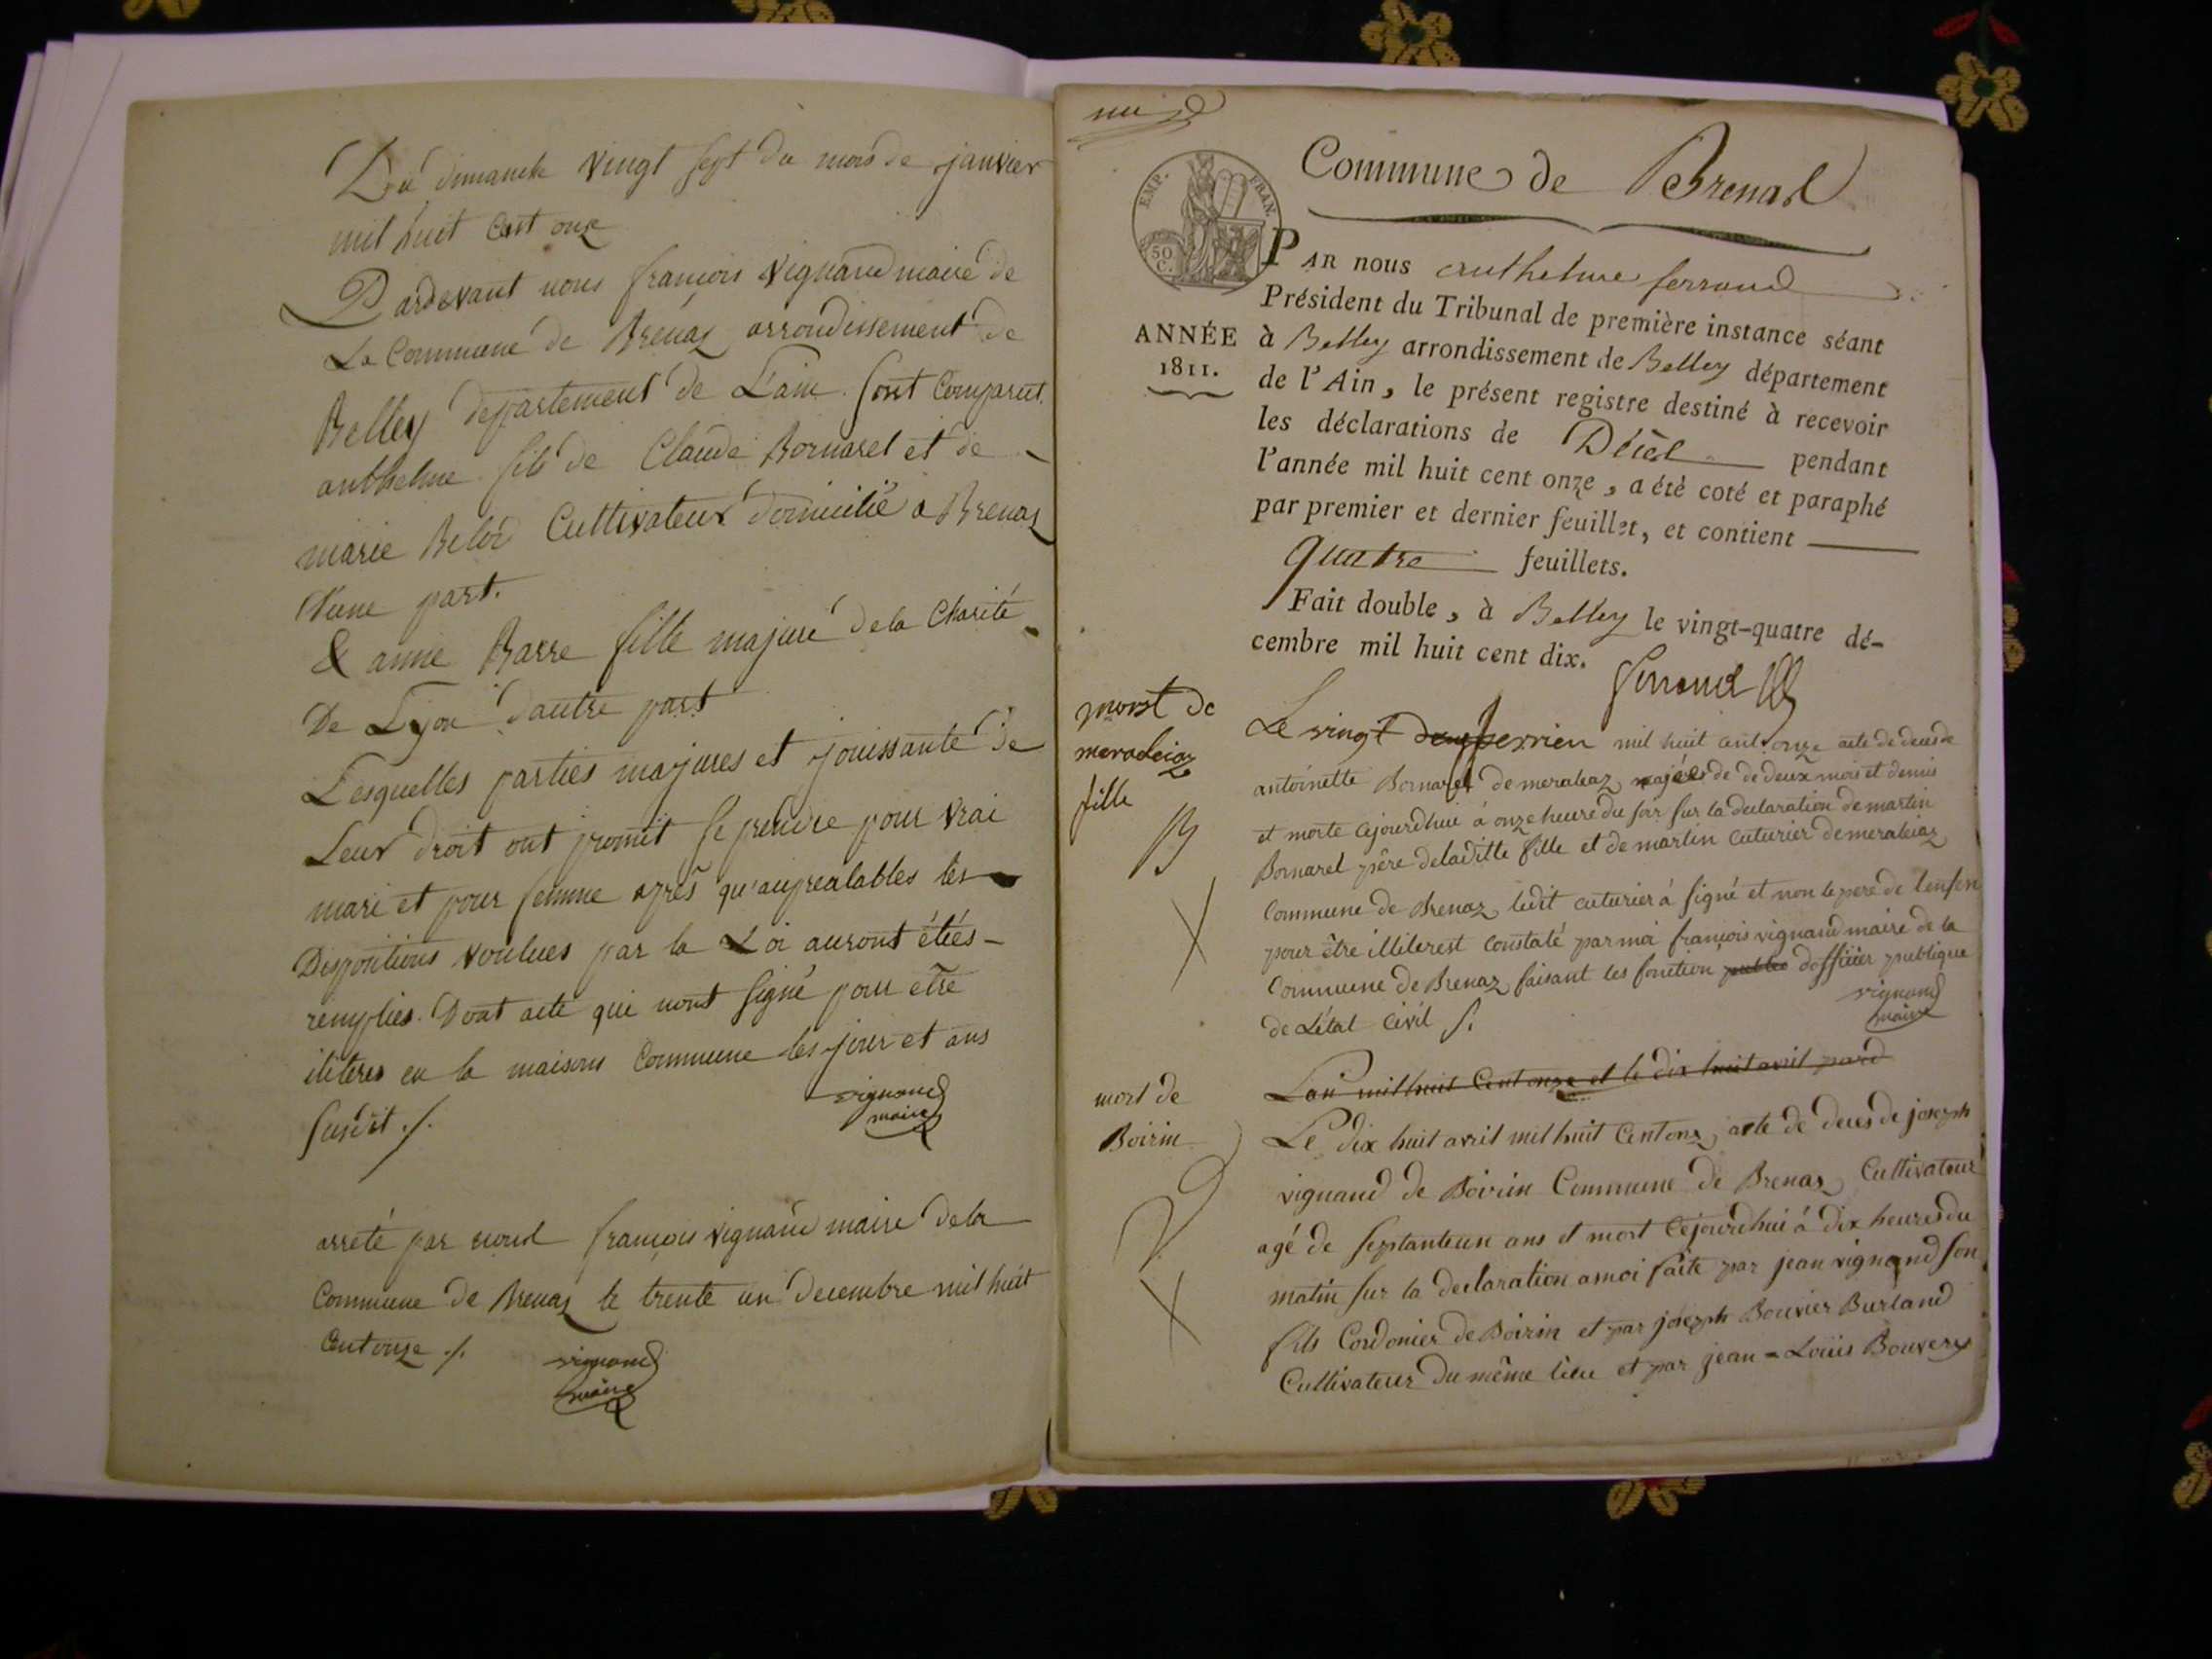 Du dimanche vingt sept du mois de janvier
mil huit cent onze
Pardevant nous françois vignand maire de
La Commune de Brenaz arrondissement de
Belley departement de L'ain sont Comparut
anthelme fils de Claude Bornarel et de
marie Belod Cultivateur domicilié a Brenaz
d'une part.
& anne Barre fille majure de la Charité
De Lyon d'autre part
Lesquelles parties majures et jouissante de
Leur droit ont promit se prendre pour vrai
mari et pour femme après qu'auprealables les
Dispositions voulues par la Loi auront étées
remplies. Dont acte qui nont signé pour être
iliteres en la maisons Commune les jour et ans
susdit ./.
vignand
maire
arreté par nous françois vignand maire de la
Commune de Brenaz le trente un decembre mil huit
Cent onze ./.
vignand
maire
Commune de Brenaz
EMP. FRAN.
50 C.
ANNÉE
1811.
PAR nous anthelme ferrand
Président du Tribunal de première instance séant
à Belley arrondissement de Belley département
de l'Ain, le présent registre destiné à recevoir
les déclarations de Décès pendant
l'année mil huit cent onze, a été coté et paraphé
par premier et dernier feuillet, et contient
quatre feuillets.
Fait double, à Belley le vingt-quatre dé-
cembre mil huit cent dix.
ferrand
mort de
meraleiaz
fille
Le vingt mil huit cent onze acte de deces de
antoinette Bornarel de meraleaz de deux mois et demis
et morte cejourdhui à onze heure du soir sur la declaration de martin
Bornarel père de laditte fille et de martin cuturier de meraleiaz
Commune de Brenaz ledit cuturier à signé et non le pere de l'enfen
pour être illiterest constaté par moi françois vignand maire de la
Commune de Brenaz faisant les fonction publi dofficier publique
de L'état Civil ./.
vignand
maire
Lan mil huit Cent onze et le dix huit avril pard
mort de
Boirin
Le dix huit avril mil huit Cent onz, acte de deces de joseph
vignand de Boirin Commune de Brenaz Cultivateur
agé de septanteun ans et mort cejourdhui à dix heures du
matin sur la declaration a moi faite par jean vignand son
fils Cordonier de Boirin et par joseph Bouvier Burland
Cultivateur du même lieu et par jean = Louis Bouvery